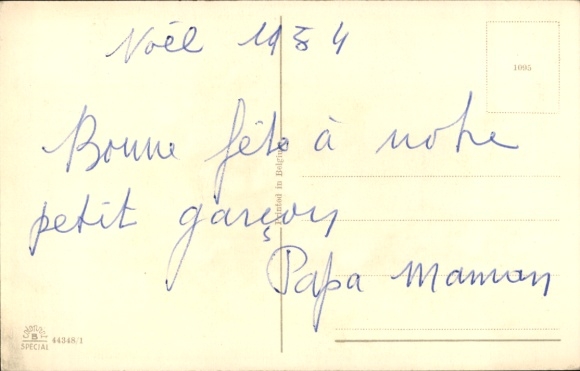 Noël 1954
1095
Bonne fête à notre
petit garçon
Papa Maman
Printed in Belgium
B
SPECIAL
44348/1